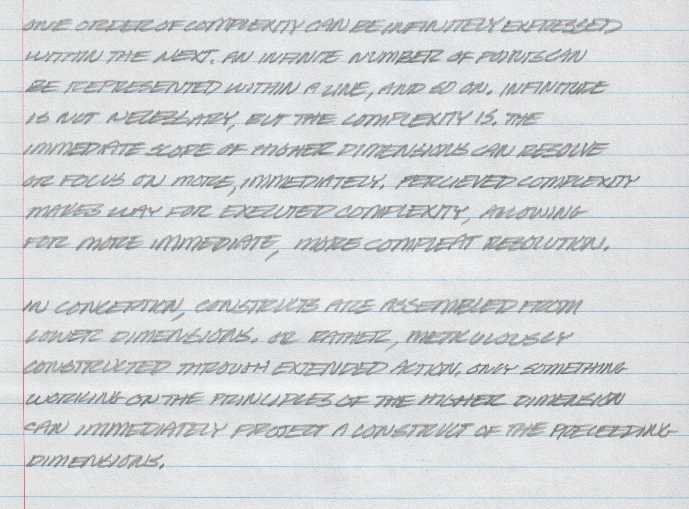 ONE ORDER OF COMPLEXITY CAN BE INFINITELY EXPRESSED
WITHIN THE NEXT. AN INFINITE NUMBER OF POINTS CAN
BE REPRESENTED WITHIN A LINE, AND SO ON. INFINITUDE
IS NOT NECESSARY, BUT THE COMPLEXITY IS. THE
IMMEDIATE SCOPE OF HIGHER DIMENSIONS CAN RESOLVE
OR FOCUS ON MORE, IMMEDIATELY. PERCIEVED COMPLEXITY
MAKES WAY FOR EXECUTED COMPLEXITY, ALLOWING
FOR MORE IMMEDIATE, MORE COMPLEAT RESOLUTION.
IN CONCEPTION, CONSTRUCTS ARE ASSEMBLED FROM
LOWER DIMENSIONS. OR RATHER, METICULOUSLY
CONSTRUCTED THROUGH EXTENDED ACTION. ONLY SOMETHING
WORKING ON THE PRINCIPLES OF THE HIGHER DIMENSION
CAN IMMEDIATELY PROJECT A CONSTRUCT OF THE PRECEEDING
DIMENSIONS.